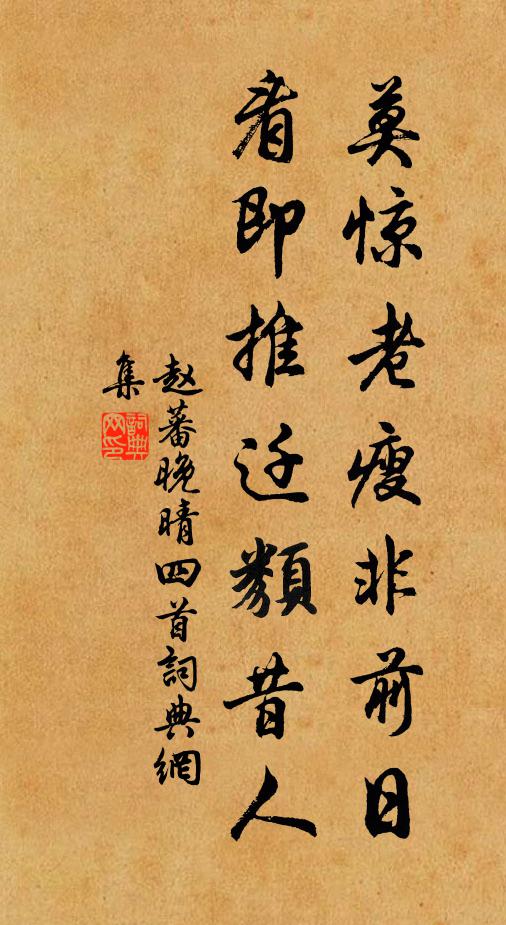 莫惊老瘦非前日
看即推迁类昔人
赵蕃晚晴四首詞典網
集
詞典
网印